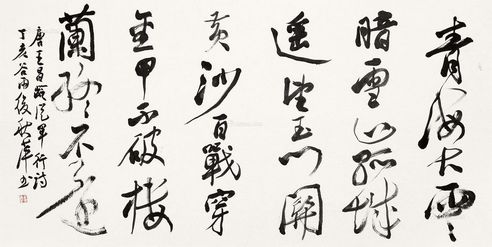 青海长雲
暗雪山孤城
遥望玉門關
黄沙百戰穿
金甲不破樓
蘭終不還
唐王昌齡從軍行詩
丁亥谷雨後秋